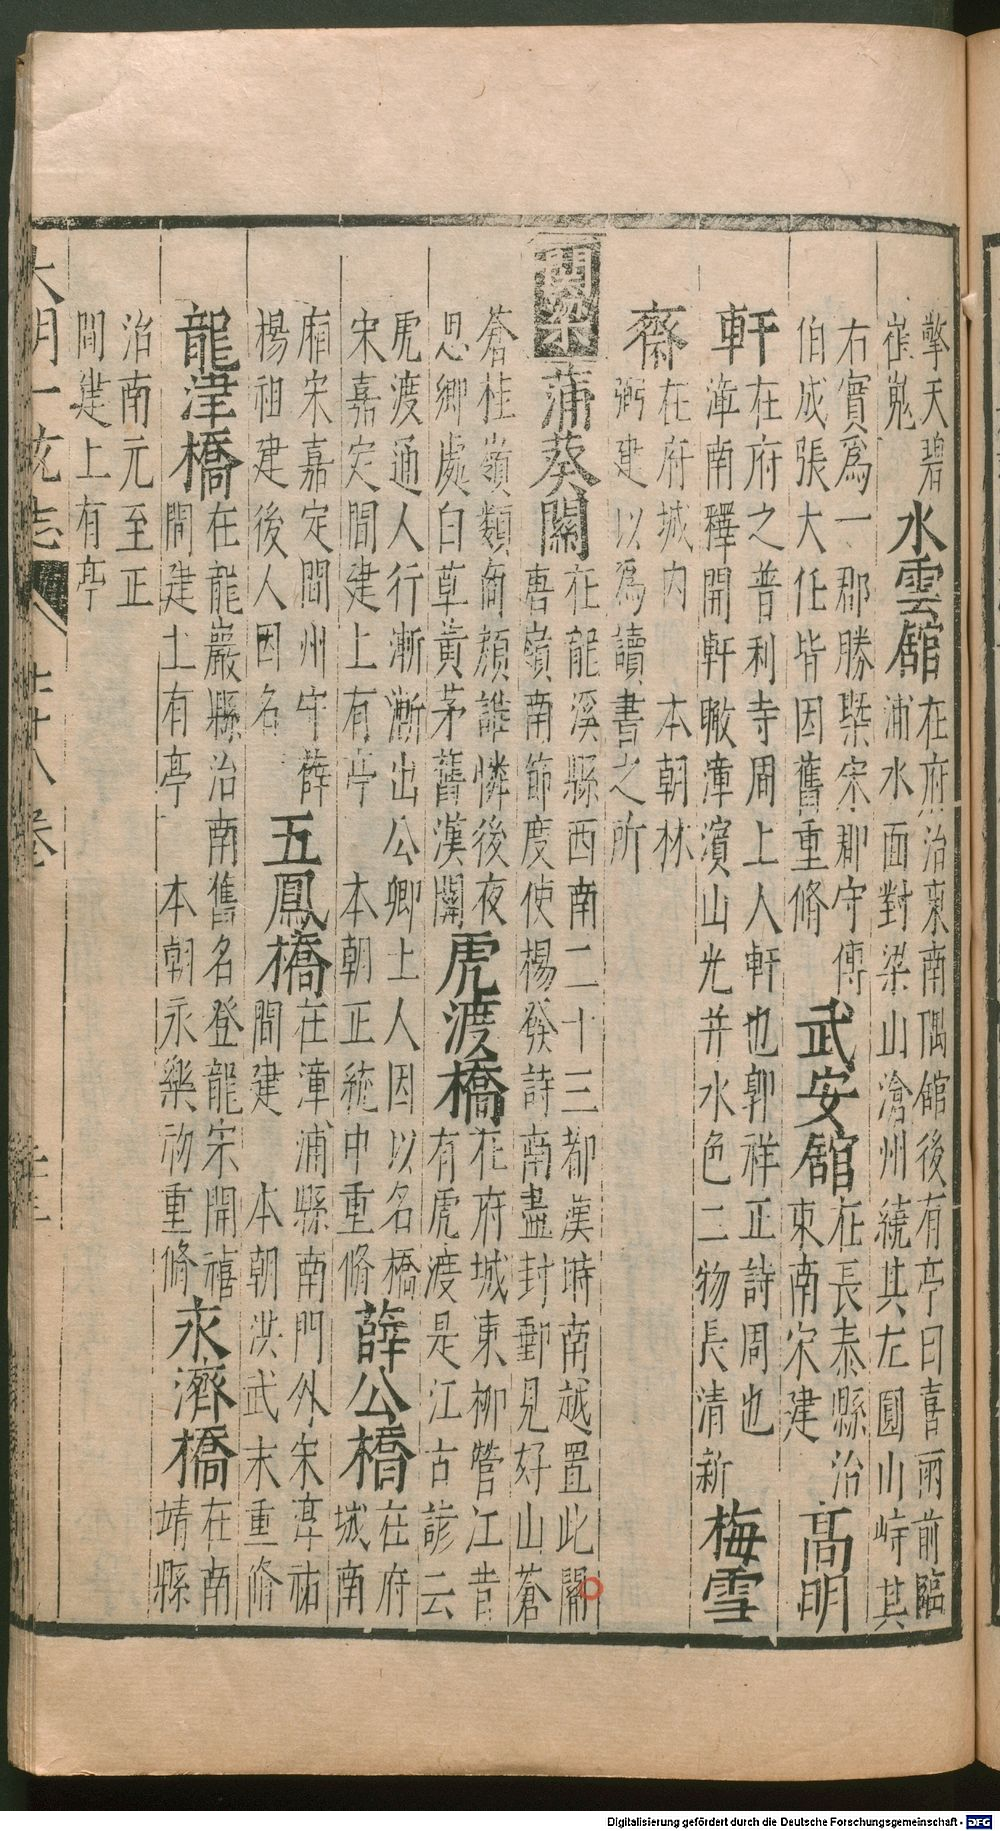 擎天碧
崔嵬
水雲館
在府治東南隅館後有亭曰喜雨前臨
浦水面對梁山滄州繞其左圓山峙其
右實爲一郡勝槩宋郡守傅
伯成張大任皆因舊重脩
武安館
在長泰縣治
東南宋建
高明
軒
在府之普利寺周上人軒也郭祥正詩周也
漳南釋開軒瞰漳濱山光并水色二物長清新
梅雪
齋
在府城内 本朝林
弼建以爲讀書之所
關梁
蒲葵關
在龍溪縣西南二十三都漢時南越置此關
唐嶺南節度使楊發詩南盡封郵見好山蒼
蒼桂嶺類顔誰憐後夜
思卿處白草黄茅舊漢關
虎渡橋
在府城東柳營江昔
有虎渡是江古諺云
虎渡通人行漸漸出公卿上人因以名橋
宋嘉定間建上有亭 本朝正統中重脩
薛公橋
在府
城南
廂宋嘉定間州守薛
楊祖建後人因名
五鳳橋
在漳浦縣南門外宋淳祐
間建 本朝洪武末重脩
龍津橋
在龍巖縣治南舊名登龍宋開禧
間建上有亭 本朝永樂初重脩
永濟橋
在南
靖縣
治南元至正
間建上有亭
大明一統志
十八卷
Digitalisierung gefördert durch die Deutsche Forschungsgemeinschaft - DFG